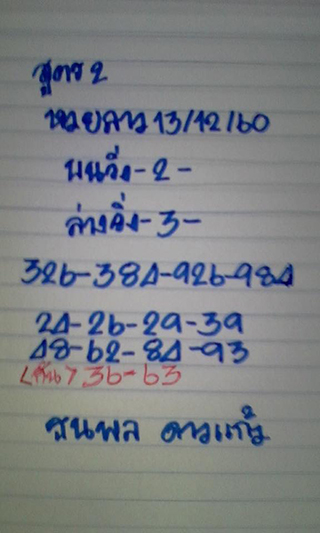 สูตร 2
หวยลาว 13/12/60
บนวิ่ง - 2 -
ล่างวิ่ง - 3 -
326-384-926-984
24-26-29-39
48-62-84-93
เน้น > 36-63
ธนพล ดาวเทร์